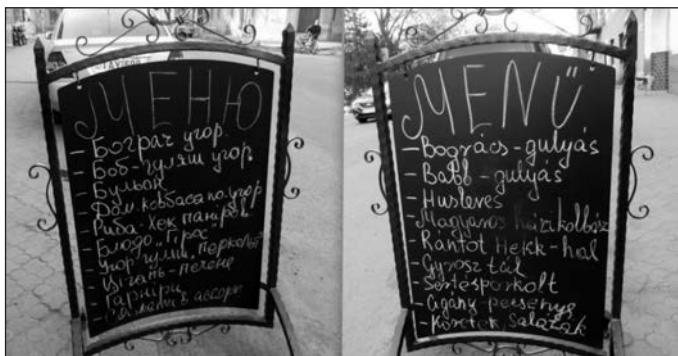 МЕНЮ
- Бограч угор.
- Боб-гуляш угор.
- Бульон
- Дом. ковбаса по-угор
- Риба-Хек паніров.
- Блюдо "Гірос"
- Угор. гуляш, порколт
- Циган-печене
- Гарніри
- Салати в ассорт.
MENÜ
- Bogrács-gulyás
- Babb-gulyás
- Husleves
- Magyaros házikolbász
- Rántot Hekk-hal
- Gyrosz tál
- Sertésporkolt
- Cigány-pecsenye
- Köretek, Saláták